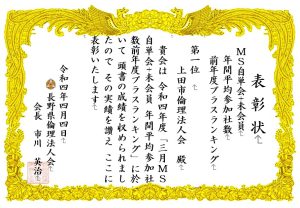 表彰状
MS自単会+未会員
年間平均参加社数
前年度プラスランキング
第一位
上田市倫理法人会 殿
貴会は 令和四年度「三月MS
自単会+未会員 年間平均参加社
数前年度プラスランキング」に於
いて 頭書の成績を収められまし
たので その実績を讃え ここに
表彰いたします
令和四年四月四日
長野県倫理法人会
会長 市川 英治